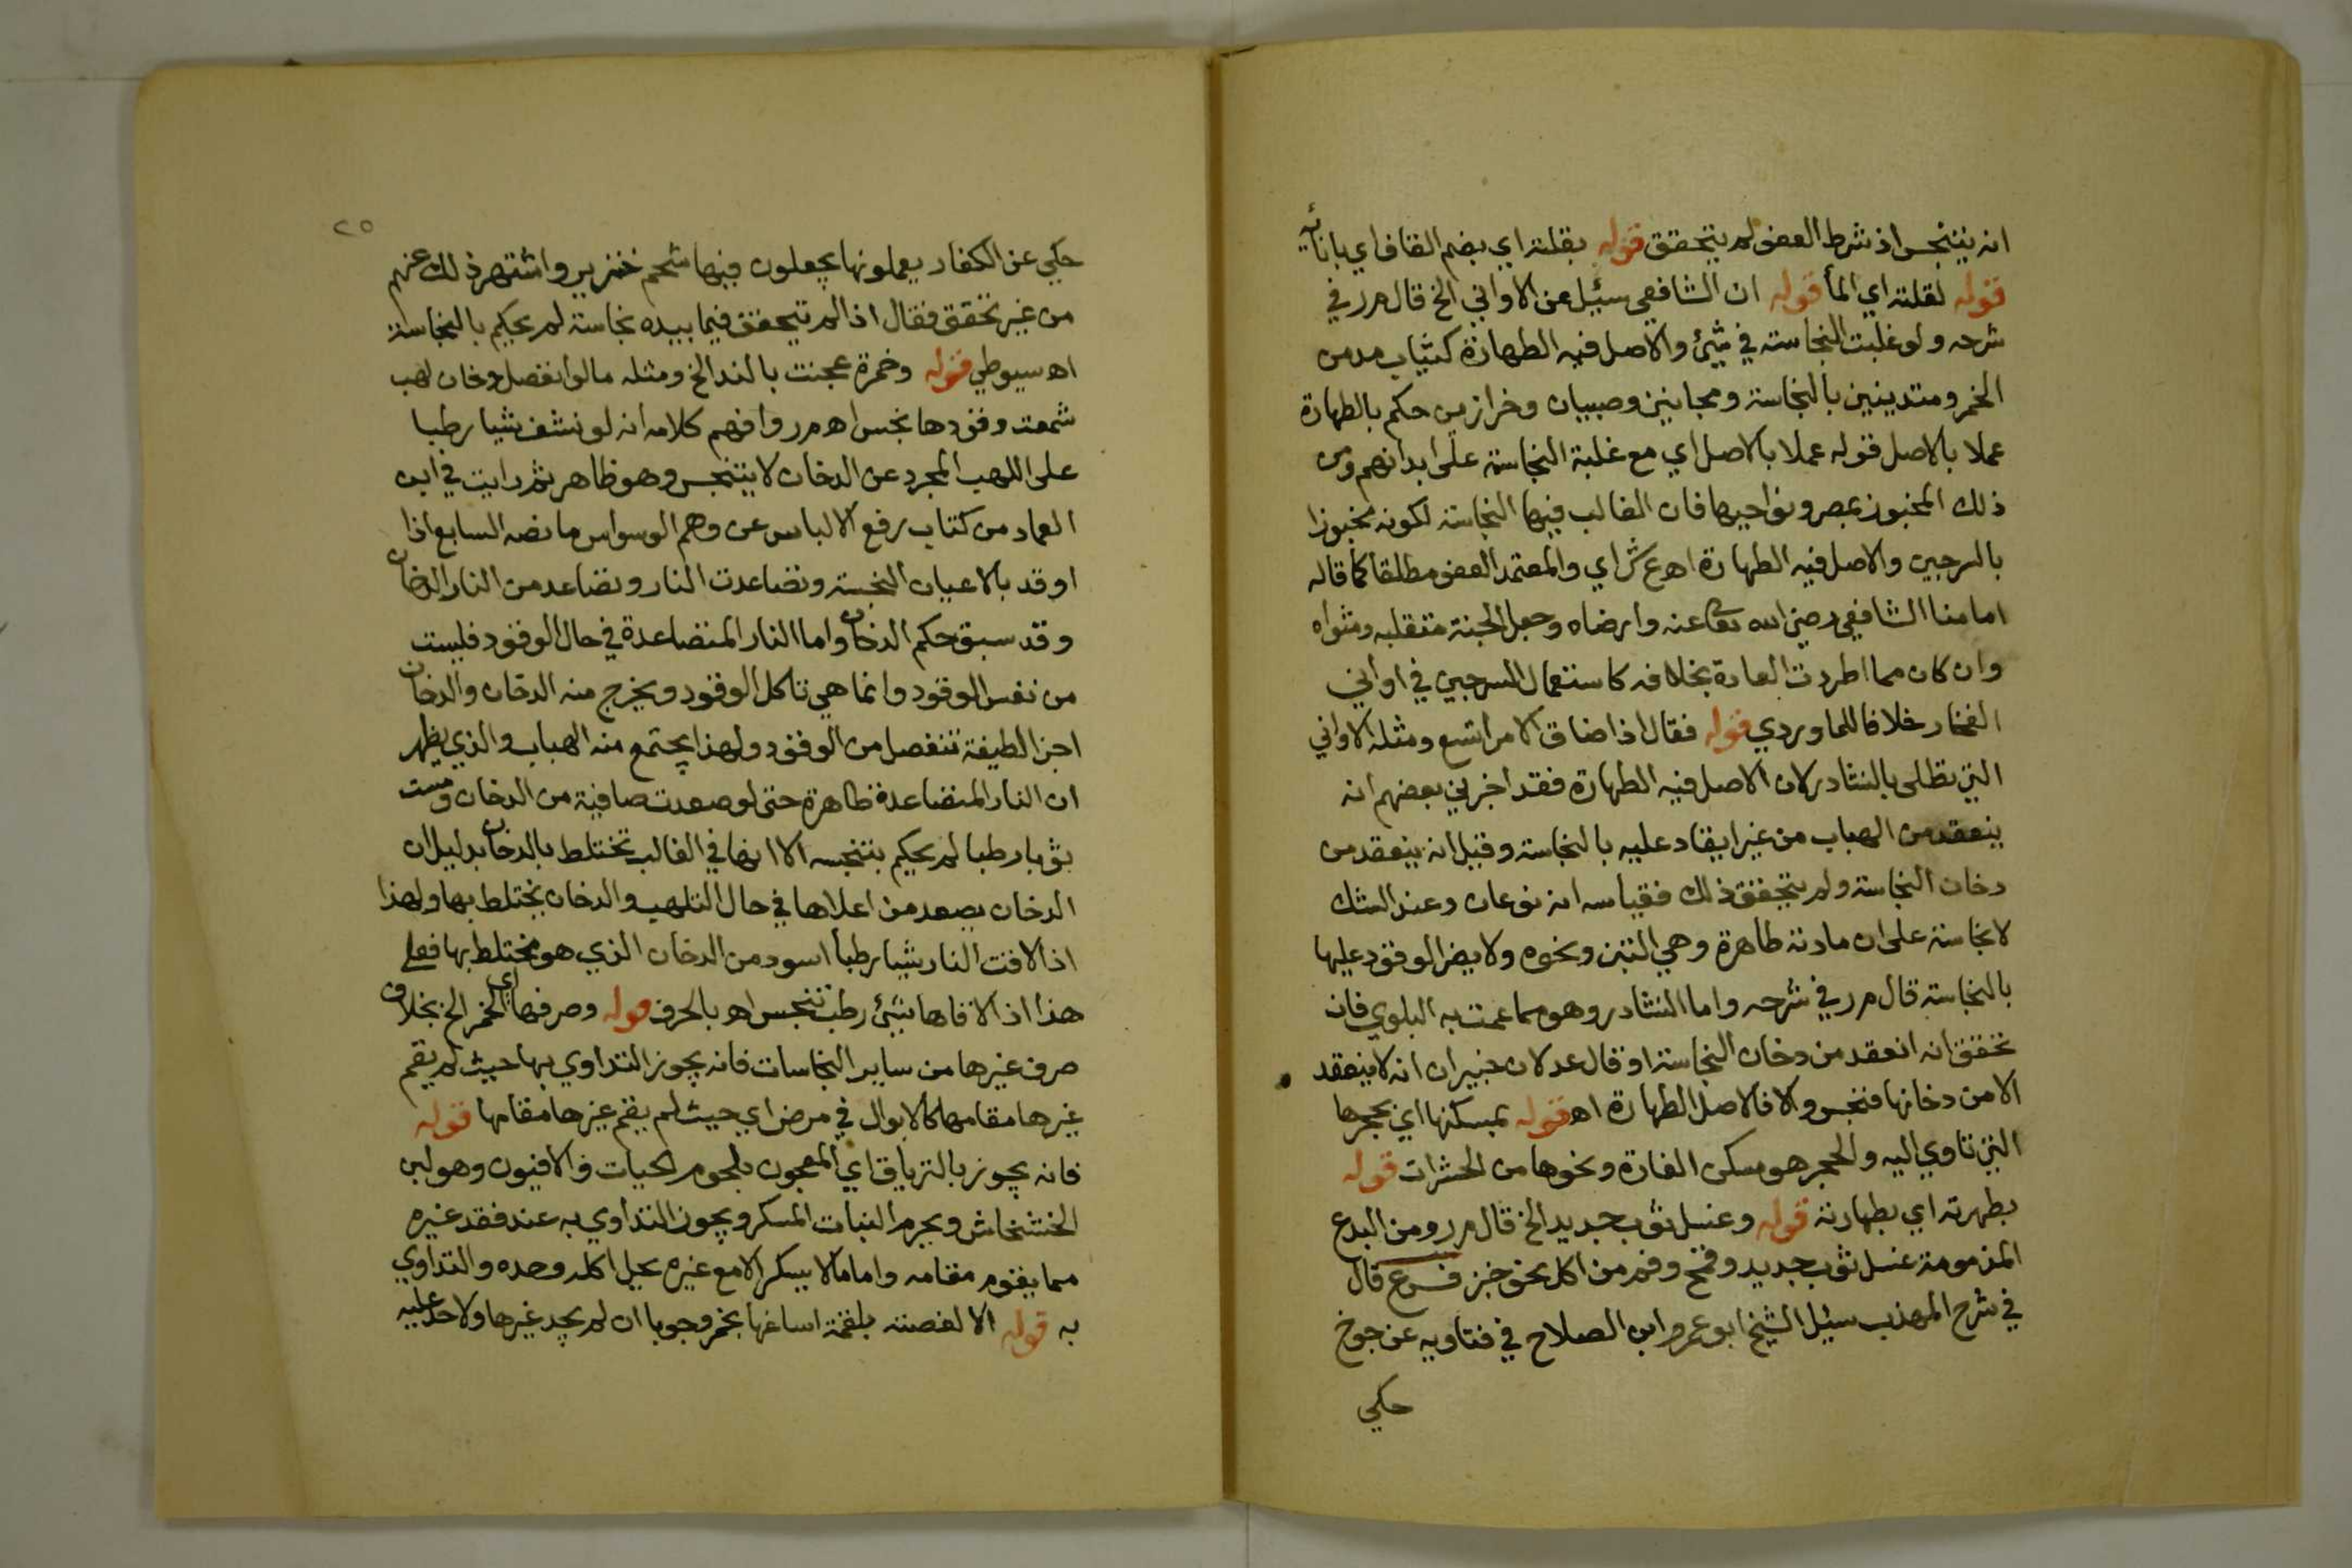 انه يتنجس اذ شرط العفو لم يتحقق قوله بقلته اي بضم القاف اي بانائه
قوله لقلته اي المأ قوله ان الشافعي سئيل عن الاواني الخ قال م ر في
شرحه ولو غلبت النجاسة في شيئ والاصل فيه الطهارة كثياب مدمن
الخمر ومتدينين بالنجاسة ومجانين وصبيان وخرازين حكم بالطهارة
عملا بالاصل قوله عملا بالاصل اي مع غلبة النجاسة على ابدانهم ومن
ذلك المخبوز بمصر ونواحيها فان الغالب فيها النجاسة لكونه مخبوزا
بالسرجين والاصل فيه الطهارة اه ع ش اي والمعتمد العفو مطلقا كما قاله
امامنا الشافعي رضي الله تعا عنه وارضاه وجعل الجنة متقلبه ومثواه
وان كان مما اطردت العادة بخلافه كاستعمال السرجين في اواني
الفخار خلافا للماوردي قوله فقال اذا ضاق الامر اتسع ومثله الاواني
التي تطلى بالنشادر لان الاصل فيه الطهارة فقد اخبرني بعضهم انه
ينعقد من الهباب من غير ايقاد عليه بالنجاسة وقيل انه ينعقد من
دخان النجاسة ولم يتحقق ذلك فقياسه انه نوعان وعند الشك
لا نجاسة على ان مادته طاهرة وهي التبن ونحوه ولا يضر الوقود عليها
بالنجاسة قال م ر في شرحه واما النشادر وهو مما عمت به البلوي فان
تحقق انه انعقد من دخان النجاسة او قال عدلان خبيران انه لا ينعقد
الا من دخانها فنجس والا فالاصل الطهارة اه قوله بمسكنها اي بحجرها
التي تاوي اليه والحجر هو مسكن الفارة ونحوها من الحشرات قوله
بطهرته اي بطهارته قوله وغسل ثوب جديد الخ قال م ر ومن البدع
المذمومة غسل ثوب جديد وقمح وفم من اكل نحو خبز فرع قال
في شرح المهذب سئيل الشيخ ابو عمرو ابن الصلاح في فتاويه عن جوخ
حكي
٢٥
حكي عن الكفار يعملونها يجعلون فيها شحم خنزير واشتهر ذلك عنهم
من غير تحقق فقال اذا لم تتحقق فيما بيده نجاسة لم يحكم بالنجاسة
اه سيوطي قوله وخمرة عجنت بالند الخ ومثله ما لو انفصل دخان لهب
شمعت وقودها نجس اه م ر وافهم كلامه انه لو نشف شيا رطبا
على اللهب المجرد عن الدخان لا يتنجس وهو ظاهر ثم رايت في ابن
العماد من كتاب رفع الالباس عن وهم الوسواس ما نصه السابع اذا
اوقد بالاعيان النجسة وتصاعدت النار وتصاعد من النار الدخان
وقد سبق حكم الدخان واما النار المتصاعدة في حال الوقود فليست
من نفس الوقود وانما هي تاكل الوقود ويخرج منه الدخان والدخان
اجزا لطيفة تنفصل من الوقود ولهذا يجتمع منه الهباب والذي يظهر
ان النار المتصاعدة طاهرة حتى لو صعدت صافية من الدخان ومست
ثوبا رطبا لم يحكم بتنجسه الا انها في الغالب تختلط بالدخان بدليل ان
الدخان يصعد من اعلاها في حال التلهب والدخان يختلط بها ولهذا
اذا لاقت النار شيا رطبا اسود من الدخان الذي هو مختلط بها فعلى
هذا اذا لاقاها شيئ رطب تنجس اه بالحرف قوله وصرفها اي الخمر الخ بخلاف
صرف غيرها من ساير النجاسات فانه يجوز التداوي بها حيث لم يقم
غيرها مقامها كالابوال في مرض اي حيث لم يقم غيرها مقامها قوله
فانه يجوز بالترياق اي المعجون بلحوم الحيات والافيون وهو لبن
الخشخاش ويحرم النبات المسكر ويجوز التداوي به عند فقد غيره
مما يقوم مقامه واما ما لا يسكر الا مع غيره يحل اكله وحده والتداوي
به قوله الا لغصته بلقمة اساغها بخمر وجوبا ان لم يجد غيرها ولا حد عليه